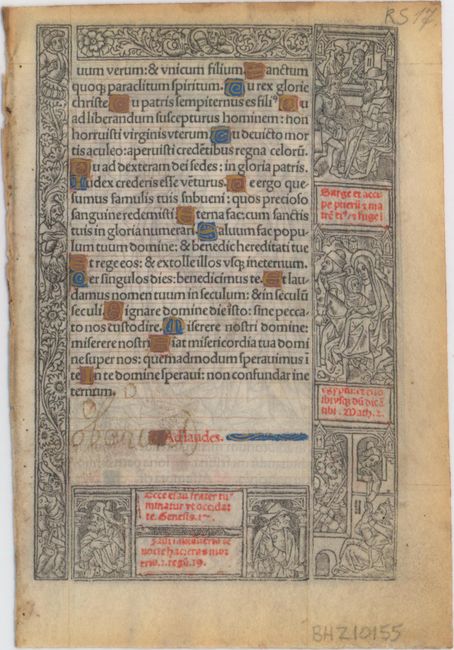 RS 17
uum verum: & vnicum filium. Sanctum
quoq; paraclitum spiritum. Tu rex glorie
christe. Tu patris sempiternus es fili⁹. Tu
ad liberandum suscepturus hominem: non
horruisti virginis vterum. Tu deuicto mor
tis aculeo: aperuisti credētibus regna celorū.
Tu ad dexteram dei sedes: in gloria patris.
Iudex crederis esse vēturus. Te ergo que
sumus famulis tuis subueni: quos precioso
sanguine redemisti. Eterna fac: cum sanctis
tuis in gloria numerari. Saluum fac popu
lum tuum domine: & benedic hereditati tue
Et rege eos: & extolle illos vsq; in eternum.
Per singulos dies: benedicimus te. Et lau
damus nomen tuum in seculum: & in seculū
seculi. Dignare domine die isto: sine pecca
to nos custodire. Miserere nostri domine:
miserere nostri. Fiat misericordia tua domi
ne super nos: quemadmodum sperauimus ī
te. In te domine speraui: non confundar in e
ternum.
Ad laudes.
Surge et acci
pe puerū & ma
trē et fuge ī
egyptū: et
ibi vsq; dū dicā
tibi. Math. 2.
Ecce esau frater tu⁹
minatur vt occidat
te. Genesis.
nocte hac
cras mor
. 1. regū. 19.
BHZ10155